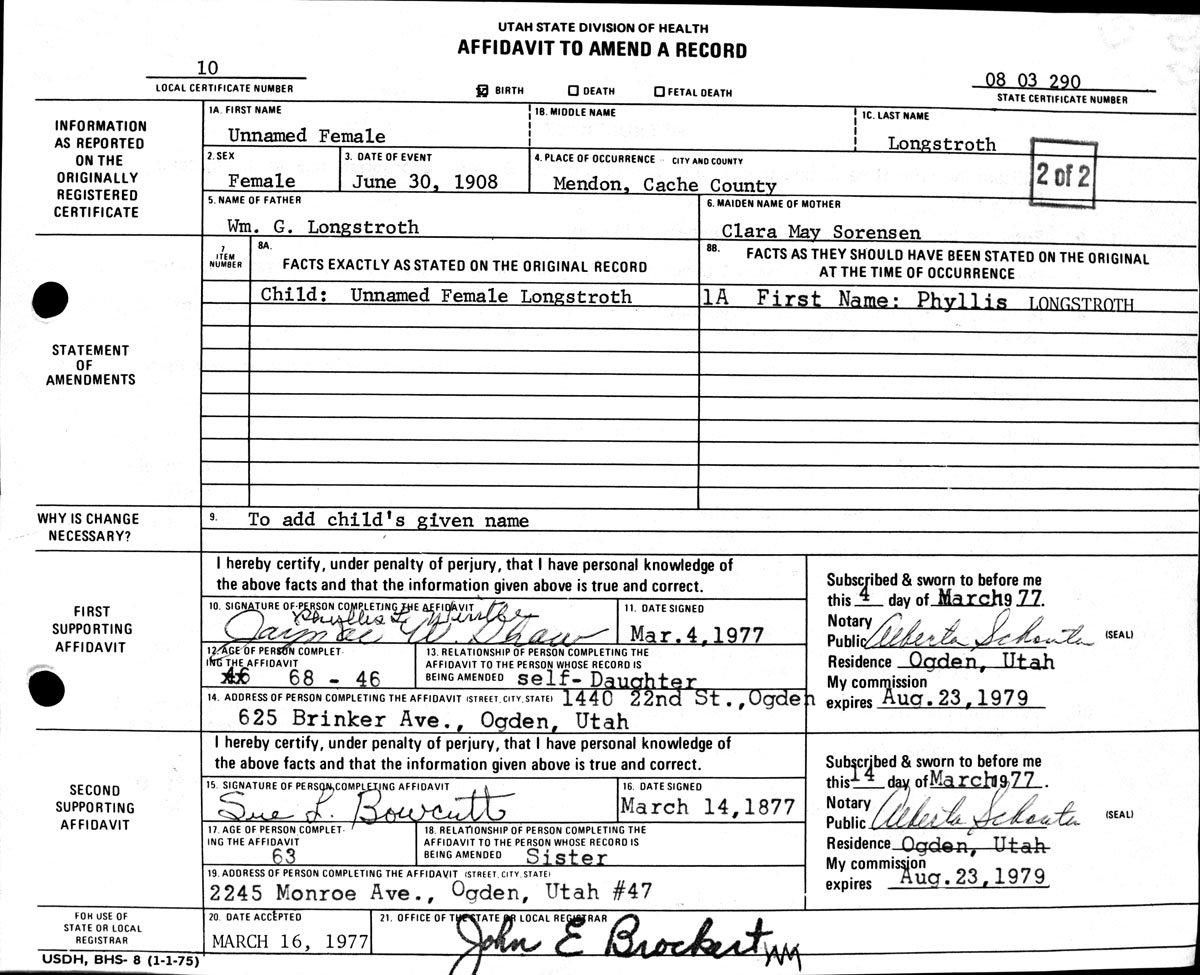 UTAH STATE DIVISION OF HEALTH
AFFIDAVIT TO AMEND A RECORD
10
LOCAL CERTIFICATE NUMBER
BIRTH DEATH FETAL DEATH
08 03 290
STATE CERTIFICATE NUMBER
INFORMATION
AS REPORTED
ON THE
ORIGINALLY
REGISTERED
CERTIFICATE
1A. FIRST NAME
Unnamed Female
1B. MIDDLE NAME
1C. LAST NAME
Longstroth
2. SEX
Female
3. DATE OF EVENT
June 30, 1908
4. PLACE OF OCCURRENCE - CITY AND COUNTY
Mendon, Cache County
2 of 2
5. NAME OF FATHER
Wm. G. Longstroth
6. MAIDEN NAME OF MOTHER
Clara May Sorensen
STATEMENT
OF
AMENDMENTS
7
ITEM
NUMBER
8A.
FACTS EXACTLY AS STATED ON THE ORIGINAL RECORD
8B. FACTS AS THEY SHOULD HAVE BEEN STATED ON THE ORIGINAL
AT THE TIME OF OCCURRENCE
Child: Unnamed Female Longstroth
1A First Name: Phyllis LONGSTROTH
WHY IS CHANGE
NECESSARY?
9. To add child's given name
FIRST
SUPPORTING
AFFIDAVIT
I hereby certify, under penalty of perjury, that I have personal knowledge of
the above facts and that the information given above is true and correct.
10. SIGNATURE OF PERSON COMPLETING THE AFFIDAVIT
Phyllis L.
W. Shaw
11. DATE SIGNED
Mar.4,1977
12. AGE OF PERSON COMPLET-
ING THE AFFIDAVIT
68 - 46
13. RELATIONSHIP OF PERSON COMPLETING THE
AFFIDAVIT TO THE PERSON WHOSE RECORD IS
BEING AMENDED self-Daughter
14. ADDRESS OF PERSON COMPLETING THE AFFIDAVIT (STREET, CITY, STATE) 1440 22nd St.,Ogden
625 Brinker Ave., Ogden, Utah
Subscribed & sworn to before me
this 4 day of March 1977.
Notary
Public Alberta Schouta (SEAL)
Residence Ogden, Utah
My commission
expires Aug.23,1979
SECOND
SUPPORTING
AFFIDAVIT
I hereby certify, under penalty of perjury, that I have personal knowledge of
the above facts and that the information given above is true and correct.
15. SIGNATURE OF PERSON COMPLETING AFFIDAVIT
Sue L. Bowcutt
16. DATE SIGNED
March 14,1877
17. AGE OF PERSON COMPLET-
ING THE AFFIDAVIT
63
18. RELATIONSHIP OF PERSON COMPLETING THE
AFFIDAVIT TO THE PERSON WHOSE RECORD IS
BEING AMENDED Sister
19. ADDRESS OF PERSON COMPLETING THE AFFIDAVIT (STREET, CITY, STATE)
2245 Monroe Ave., Ogden, Utah #47
Subscribed & sworn to before me
this 14 day of March 1977.
Notary
Public Alberta Schouta (SEAL)
Residence Ogden, Utah
My commission
expires Aug.23,1979
FOR USE OF
STATE OR LOCAL
REGISTRAR
20. DATE ACCEPTED
MARCH 16, 1977
21. OFFICE OF THE STATE OR LOCAL REGISTRAR
John E Brockert
USDH, BHS- 8 (1-1-75)